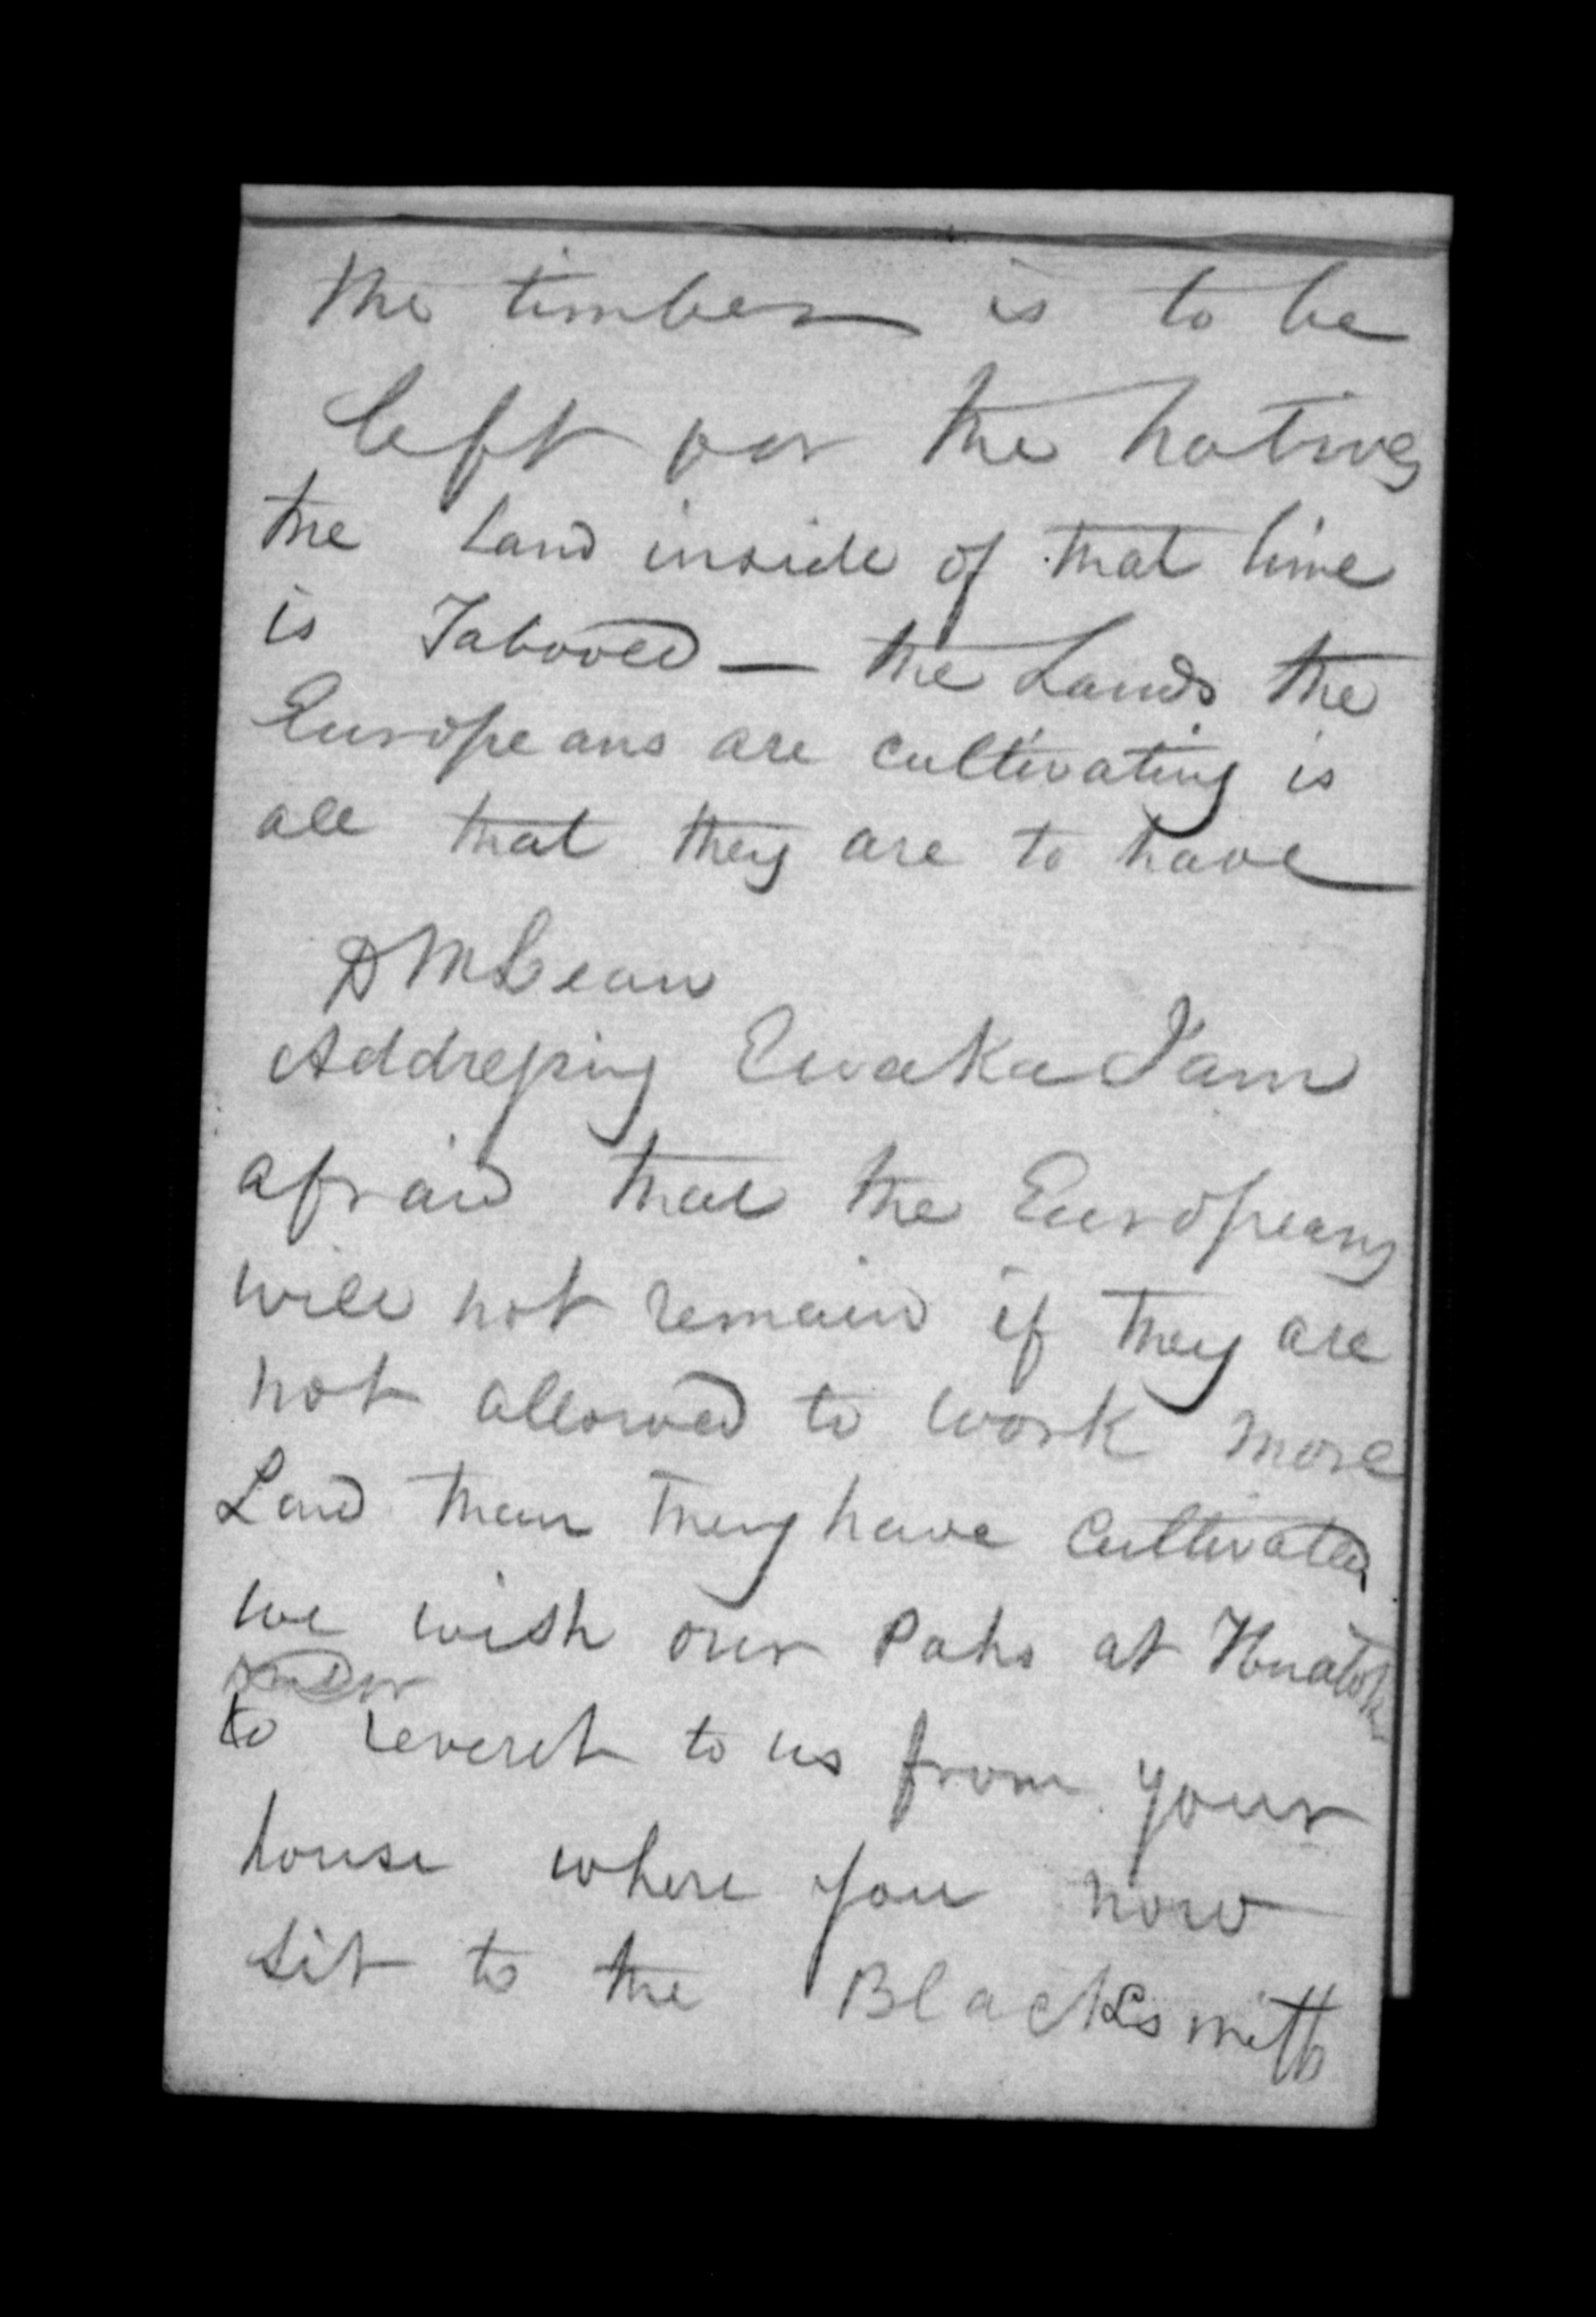 the timber is to be
left for the natives
the land inside of that line
is Tabooed — the Lands the
Europeans are cultivating is
all that they are to have
D McLean
Addressing Ewaka I am
afraid that the Europeans
will not remain if they are
not allowed to work more
Land than they have cultivated
we wish our Pahs at Huatoki
to reveret to us from your
house where you now
sit to the Blacksmith